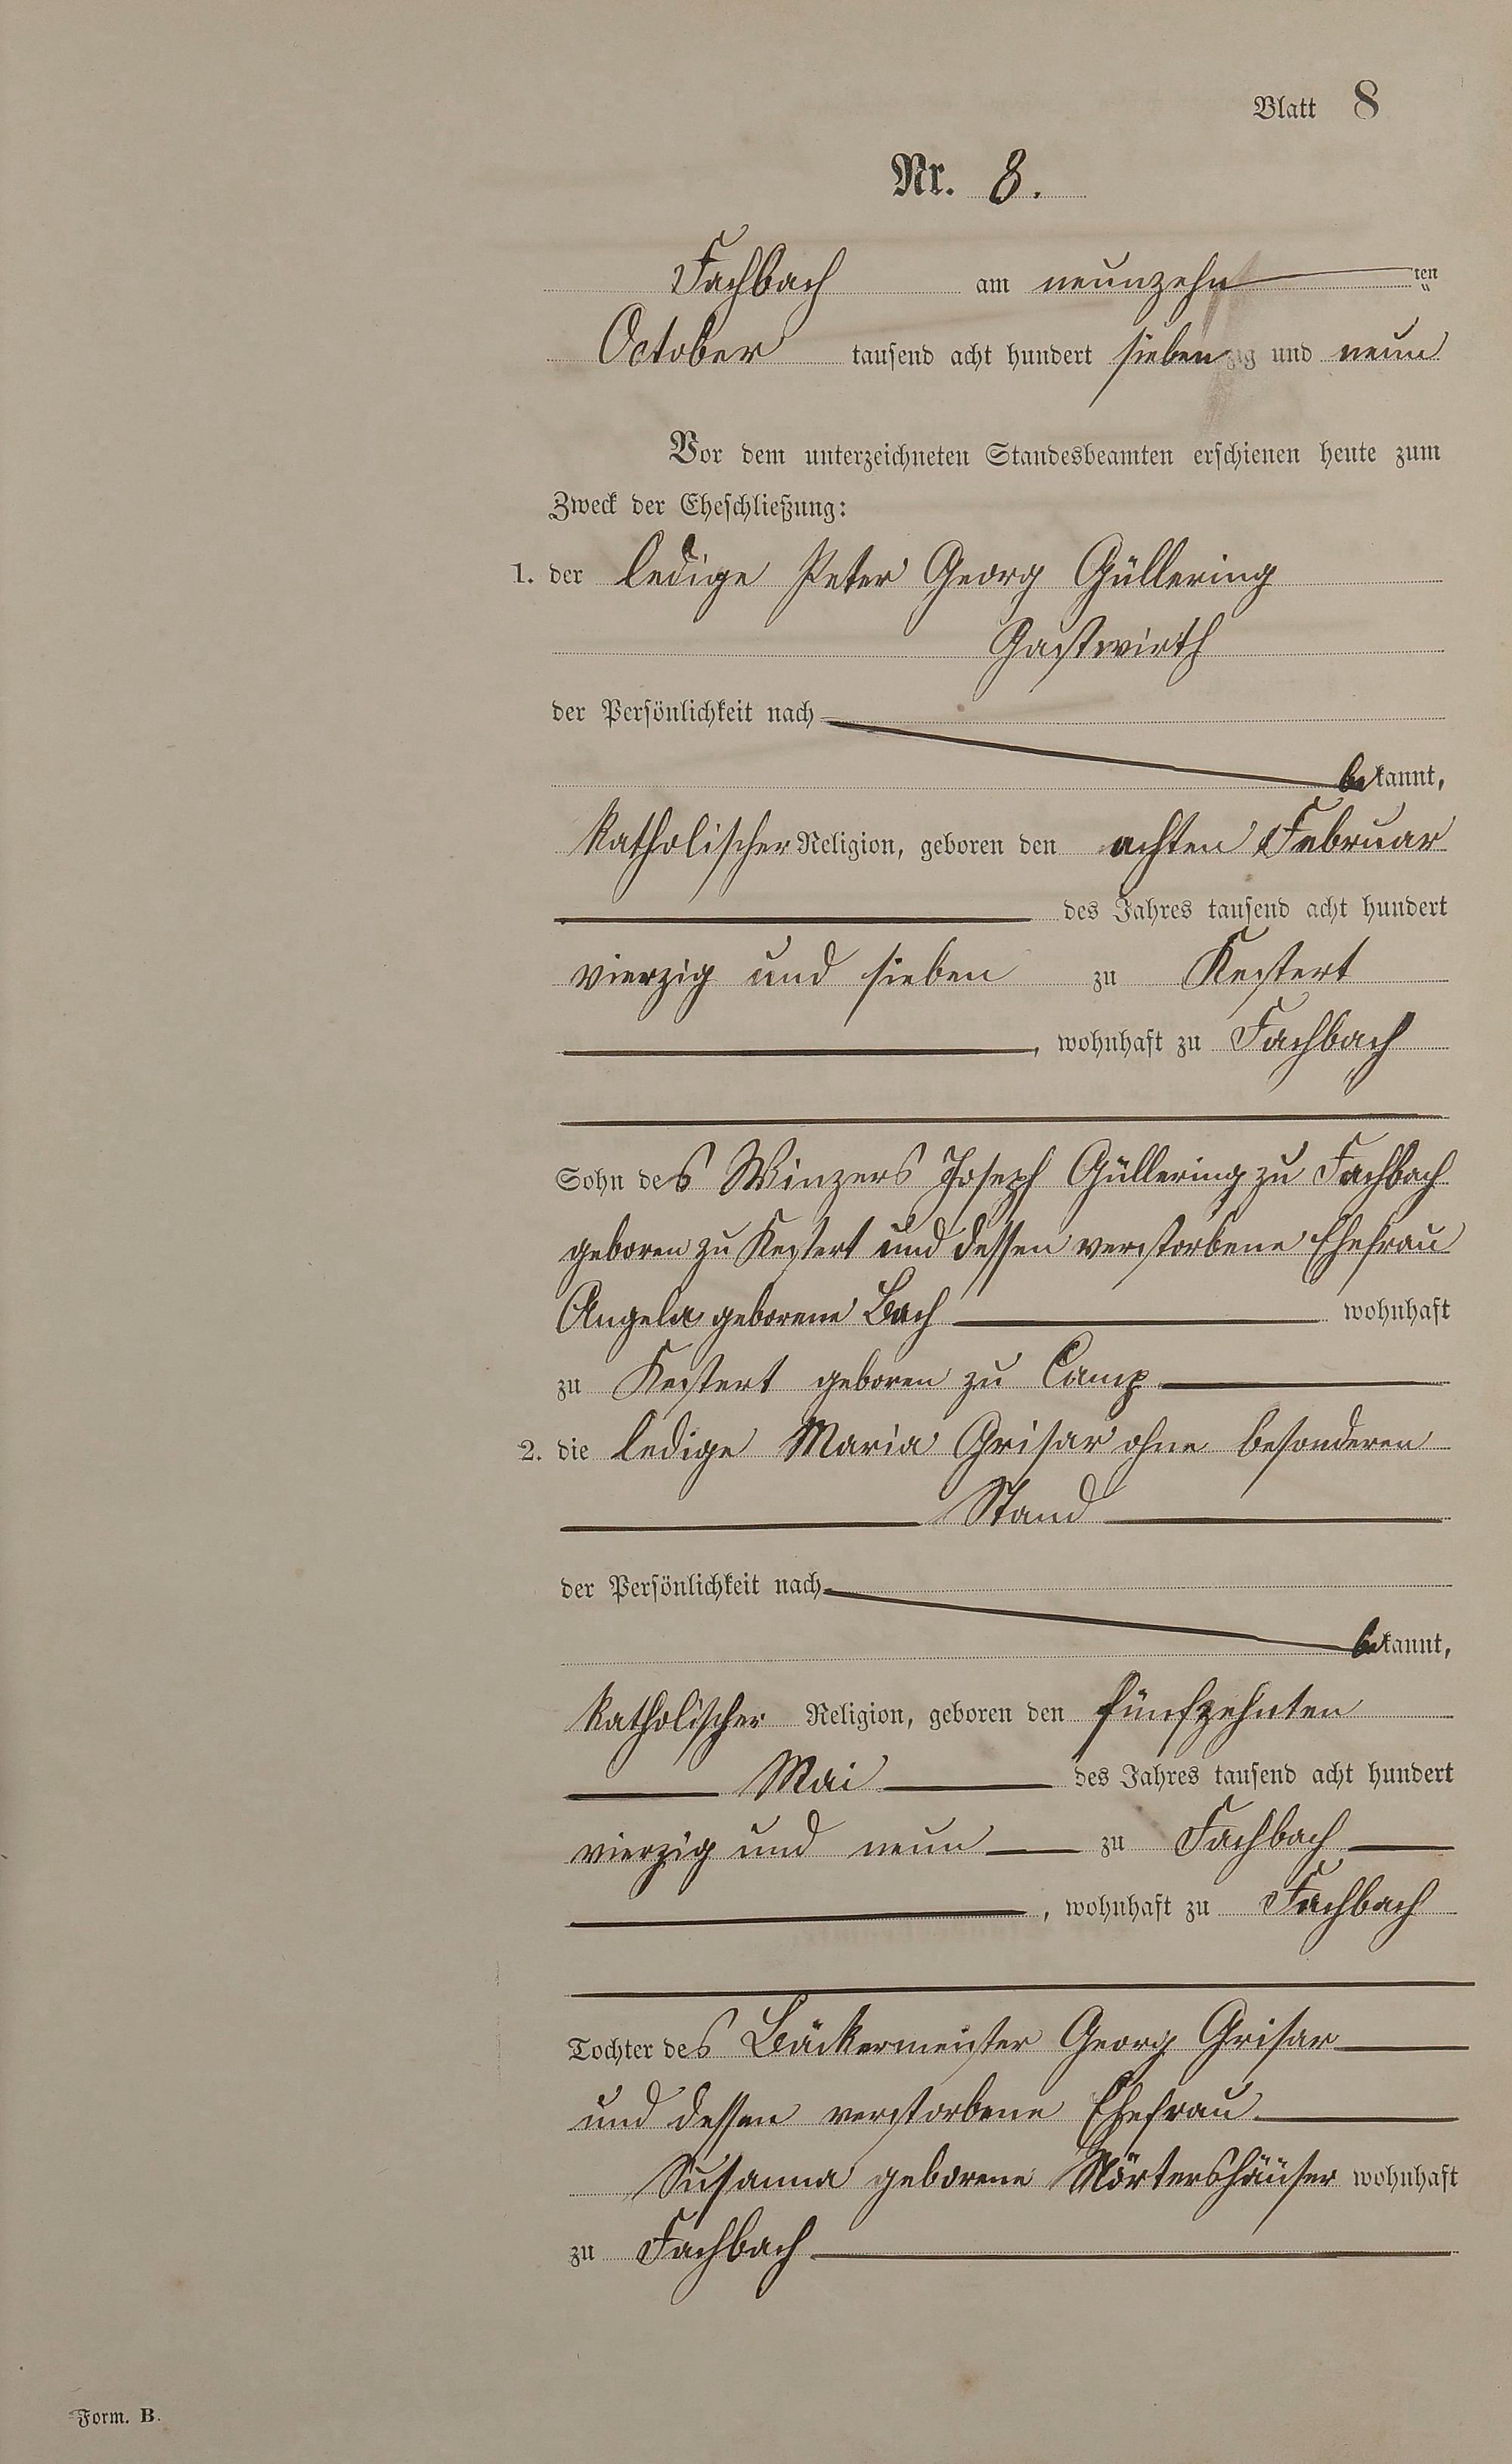 Blatt 8
Nr. 8.
Fachbach am neunzehn ten
October tausend acht hundert siebenzig und neun
Vor dem unterzeichneten Standesbeamten erschienen heute zum
Zweck der Eheschließung:
1. der ledige Peter Georg Güllering
Gastwirth
der Persönlichkeit nach
bekannt,
katholischer Religion, geboren den achten Februar
des Jahres tausend acht hundert
vierzig und sieben zu Kestert
, wohnhaft zu Fachbach
Sohn des Winzers Joseph Güllering zu Fachbach
geboren zu Kestert und dessen verstorbene Ehefrau
Angela geborene Bach wohnhaft
zu Kestert geboren zu Camp
2. die ledige Maria Grisar ohne besonderen
Stand
der Persönlichkeit nach
bekannt,
katholischer Religion, geboren den fünfzehnten
Mai des Jahres tausend acht hundert
vierzig und neun zu Fachbach
, wohnhaft zu Fachbach
Tochter des Bäckermeister Georg Grisar
und dessen verstorbene Ehefrau
Susanna geborene Mörtershäuser wohnhaft
zu Fachbach
Form. B.